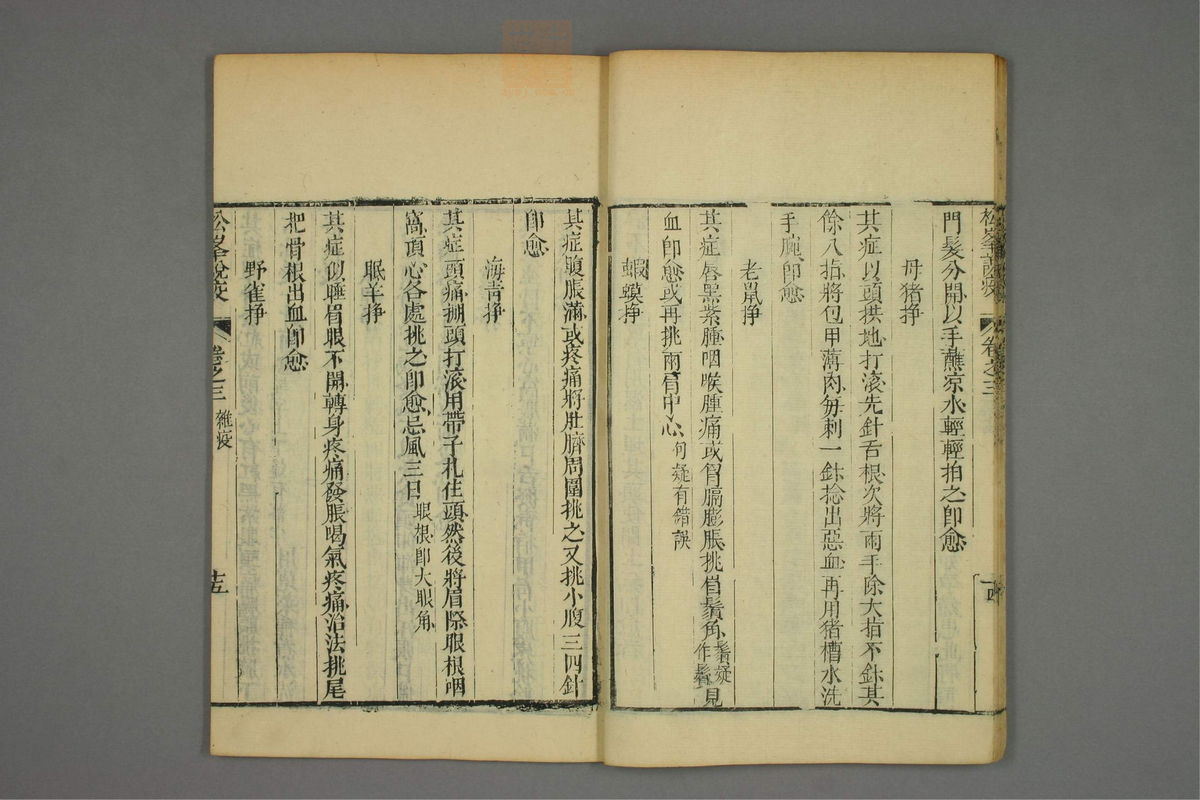 松峯說疫 卷之三
門髮分開以手蘸凉水輕輕拍之卽愈
母猪挣
其症以頭拱地打滚先針舌根次將兩手除大指不針其
餘八指將包甲薄肉每刺一針捻出惡血再用猪槽水洗
手腕卽愈
老鼠挣
其症唇黑紫腫咽喉腫痛或胷膈膨脹挑眥鬚角鬚疑作鬢見
血卽愈或再挑兩胷中心句疑有錯誤
蝦蟆挣
其症腹脹滿或疼痛將肚臍周圍挑之又挑小腹三四針
卽愈
海青挣
其症頭痛掤頭打滚用帶子扎住頭然後將眉際眼根咽
窩頂心各處挑之卽愈忌風三日眼根卽大眼角
眠羊挣
其症似睡眉眼不開轉身疼痛發脹喝氣疼痛治法挑尾
把骨根出血卽愈
野雀挣
松峯說疫 卷之三 雜疫 十五